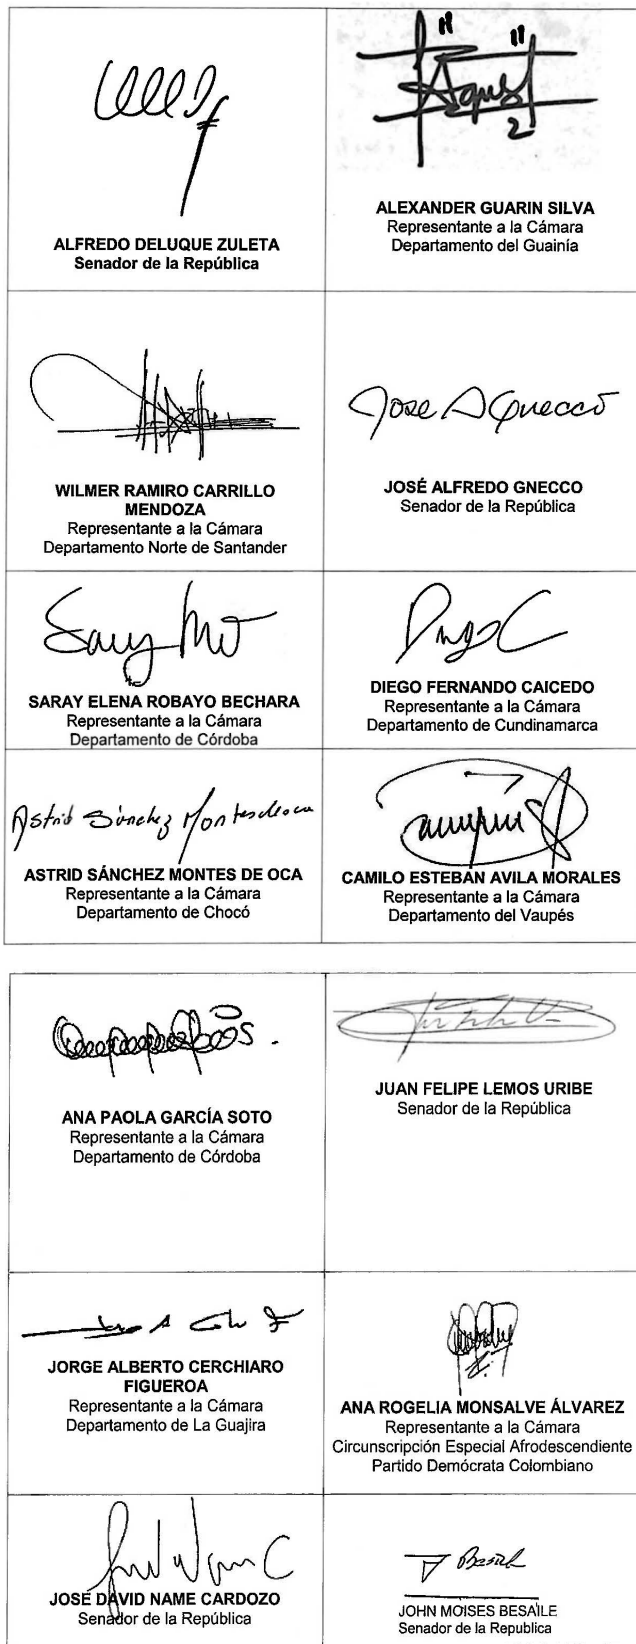 ALFREDO DELUQUE ZULETA
Senador de la República
ALEXANDER GUARIN SILVA
Representante a la Cámara
Departamento del Guainía
WILMER RAMIRO CARRILLO
MENDOZA
Representante a la Cámara
Departamento Norte de Santander
Jose A Gnecco
JOSÉ ALFREDO GNECCO
Senador de la República
SARAY ELENA ROBAYO BECHARA
Representante a la Cámara
Departamento de Córdoba
DIEGO FERNANDO CAICEDO
Representante a la Cámara
Departamento de Cundinamarca
Astrid Sánchez Montesdeoca
ASTRID SÁNCHEZ MONTES DE OCA
Representante a la Cámara
Departamento de Chocó
CAMILO ESTEBAN AVILA MORALES
Representante a la Cámara
Departamento del Vaupés
ANA PAOLA GARCÍA SOTO
Representante a la Cámara
Departamento de Córdoba
JUAN FELIPE LEMOS URIBE
Senador de la República
JORGE ALBERTO CERCHIARO
FIGUEROA
Representante a la Cámara
Departamento de La Guajira
ANA ROGELIA MONSALVE ÁLVAREZ
Representante a la Cámara
Circunscripción Especial Afrodescendiente
Partido Demócrata Colombiano
JOSÉ DAVID NAME CARDOZO
Senador de la República
JOHN MOISES BESAILE
Senador de la Republica